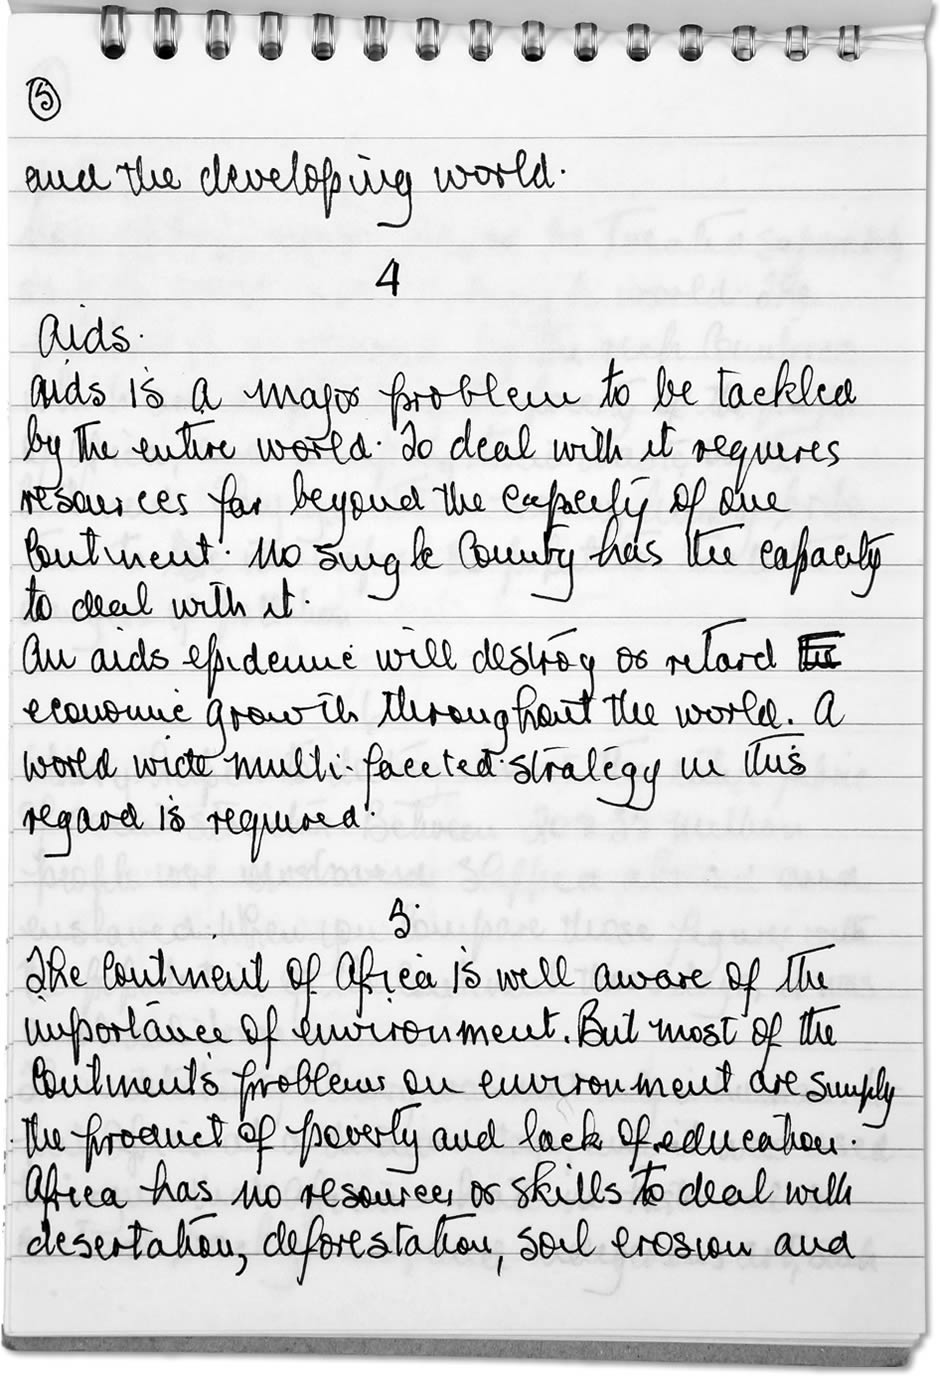 5
and the developing world.
4
Aids.
Aids is a major problem to be tackled
by the entire world. To deal with it requires
resources far beyond the capacity of one
Continent. No single County has the capacity
to deal with it.
An aids epidemic will destroy or retard the
economic growth throughout the world. A
world wide multi-faceted strategy in this
regard is required.
5.
The Continent of Africa is well aware of the
importance of environment. But most of the
Continent's problems on environment are simply
the product of poverty and lack of education.
Africa has no resources or skills to deal with
desertation, deforestation, soil erosion and